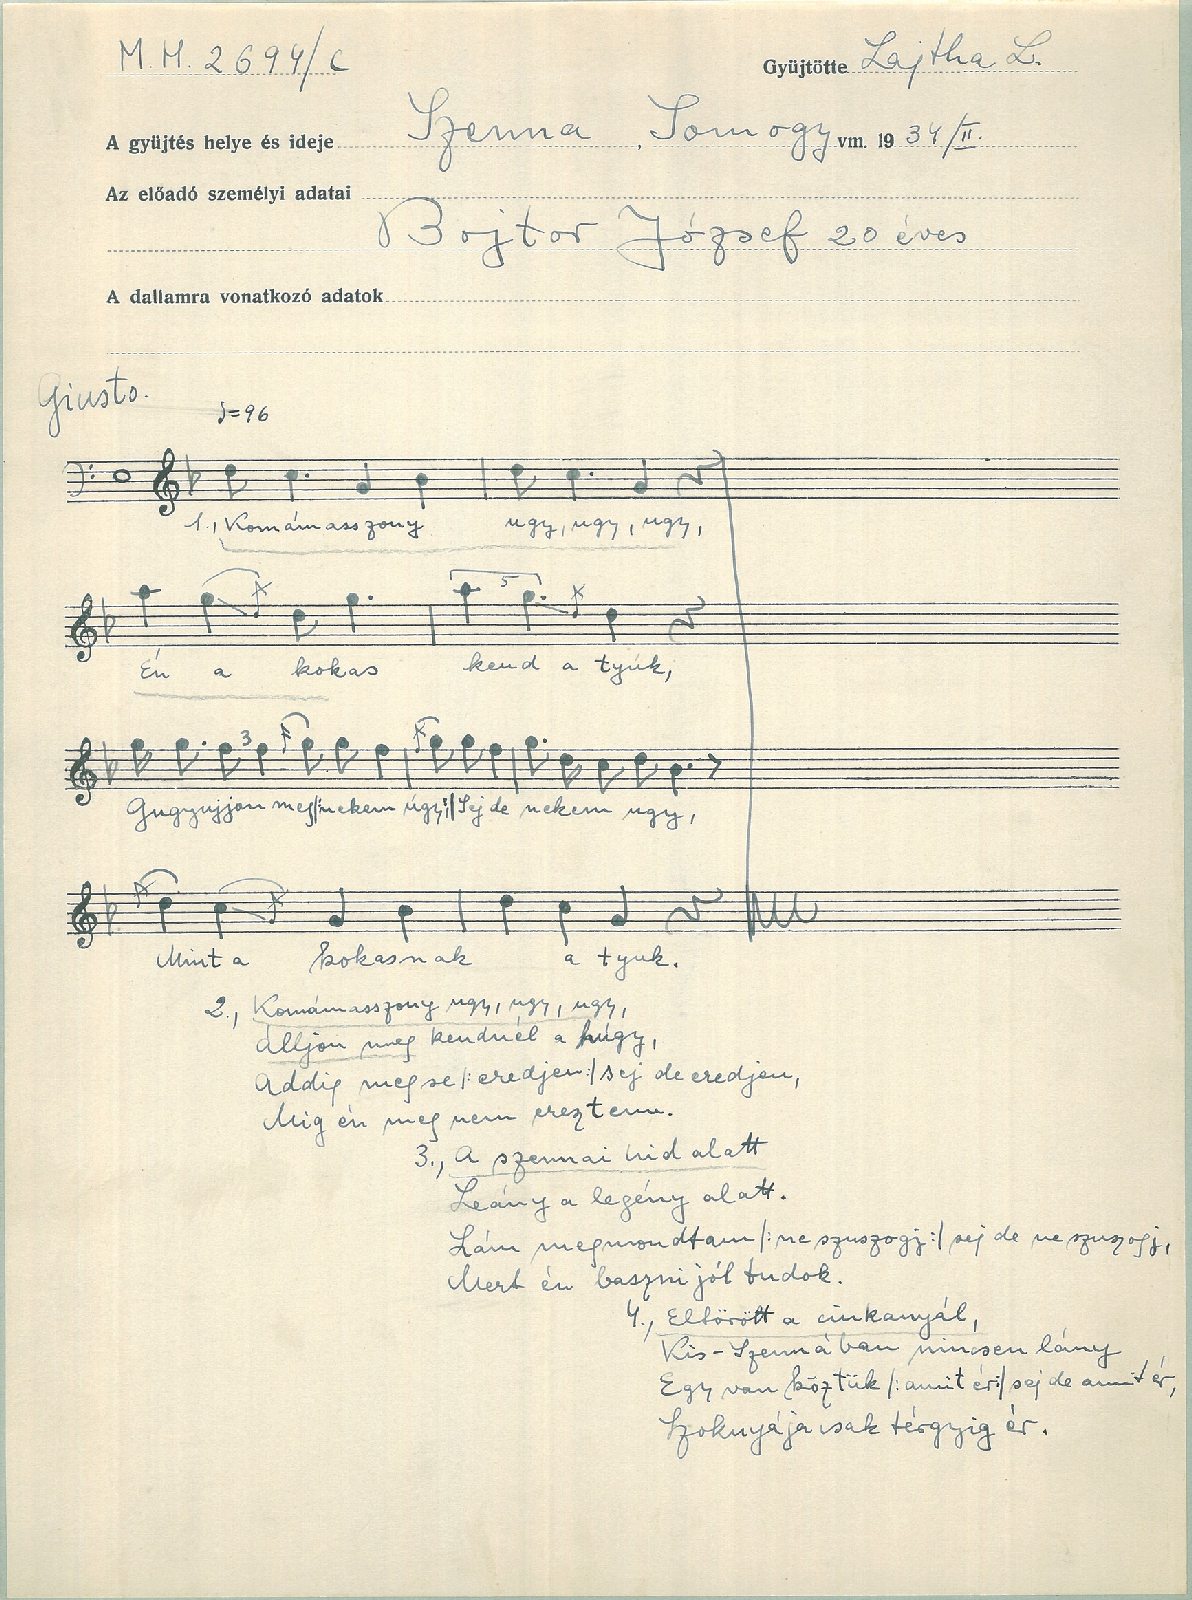 M.H. 2694/c
Gyüjtötte Lajtha L.
A gyüjtés helye és ideje Szenna, Somogy vm. 1934/II.
Az előadó személyi adatai
Bojtor József 20 éves
A dallamra vonatkozó adatok
Giusto.
♩=96
1., Komámasszony ugy, ugy, ugy,
5
Én a kokas kend a tyúk,
3
Gugyujjon meg |:nekem úgy:| Sej de nekem ugy,
Mint a kokasnak a tyuk.
2., Komámasszony ugy, ugy, ugy,
Álljon meg kendnél a húgy,
Addig meg se |: eredjen :| sej de eredjen,
Mig én meg nem ereztem.
3., A szennai hid alatt
Leány a legény alatt.
Lám megmondtam |: ne szuszogj :| sej de ne szuszogj,
Mert én baszni jól tudok.
4., Eltörött a cinkanyál,
Kis-Szennában nincsen lány
Egy van köztük |: amit ér :| sej de amit ér,
Szoknyája csak térgyig ér.